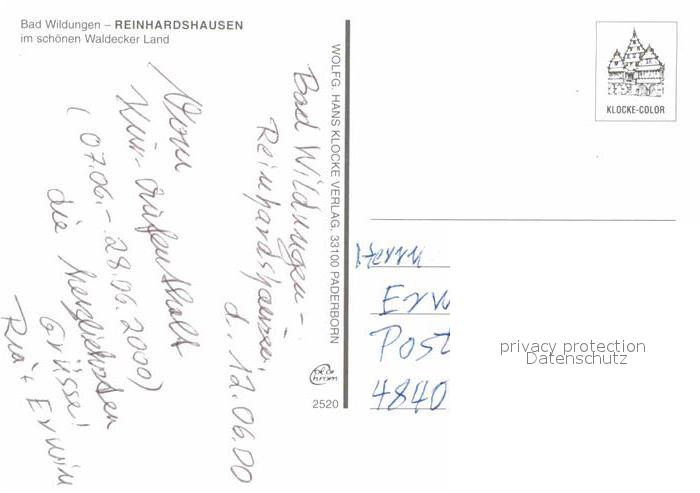 Bad Wildungen – REINHARDSHAUSEN
im schönen Waldecker Land
Bad Wildungen –
Reinhardshausen,
d. 12.06.00
Vom
Kur-Aufenthalt
(07.06. – 28.06.2000)
die herzlichsten
Grüsse!
Ria + Erwin
WOLFG. HANS KLOCKE VERLAG, 33100 PADERBORN
2520
KLOCKE-COLOR
Herrn
Erw
Post
4840
privacy protection
Datenschutz